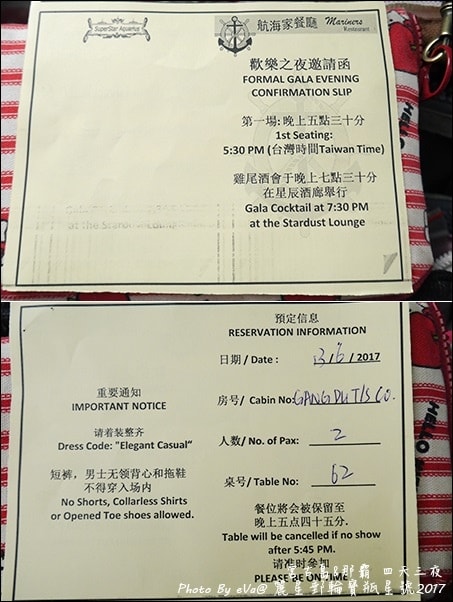 SuperStar Aquarius
航海家餐廳 Mariners
Restaurant
歡樂之夜邀請函
FORMAL GALA EVENING
CONFIRMATION SLIP
第一場: 晚上五點三十分
1st Seating:
5:30 PM (台灣時間Taiwan Time)
雞尾酒會于晚上七點三十分
在星辰酒廊舉行
Gala Cocktail at 7:30 PM
at the Stardust Lounge
重要通知
IMPORTANT NOTICE
请着装整齐
Dress Code: "Elegant Casual"
短裤，男士无领背心和拖鞋
不得穿入场内
No Shorts, Collarless Shirts
or Opened Toe shoes allowed.
預定信息
RESERVATION INFORMATION
日期 / Date : 13/6/2017
房号/ Cabin No: GANGDUTIS CO.
人数/ No. of Pax: 2
桌号/ Table No: 62
餐位將會被保留至
晚上五点四十五分.
Table will be cancelled if no show
after 5:45 PM.
请准时参加
PLEASE BE ON TIME
HELLO
HELLO
宮古島&那霸 四天三夜
Photo By eVa@ 麗星郵輪寶瓶星號2017